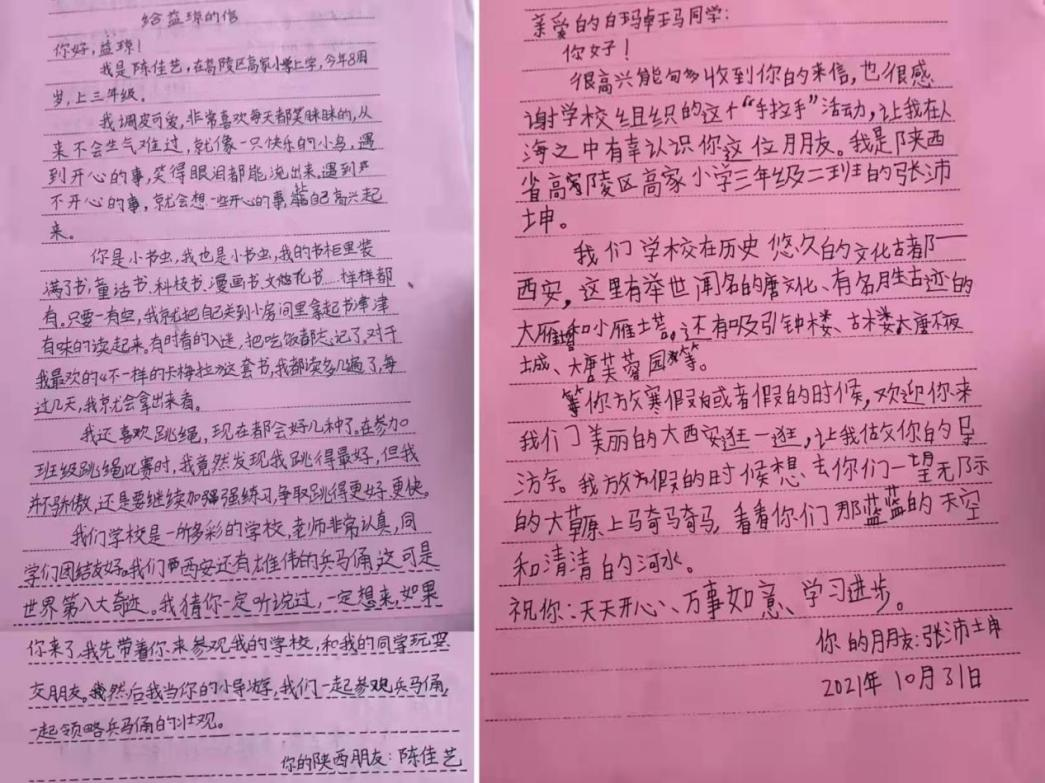 给益琼的信
你好,益琼!
我是陈佳艺,在高陵区高家小学上学,今年8周
岁,上三年级。
我调皮可爱,非常喜欢每天都笑眯眯的,从
来不会生气难过,就像一只快乐的小鸟,遇
到开心的事,笑得眼泪都能流出来。遇到
不开心的事,就会想一些开心的事,能自己高兴起
来。
你是小书虫,我也是小书虫,我的书柜里装
满了书,童话书、科技书、漫画书、文化书……样样都
有。只要一有空,我就把自己关到小房间里拿起书津津
有味的读起来。有时看的入迷,把吃饭都忘记了,对于
我最欢的《不一样的卡梅拉》这套书,我都读多几遍了,每
过几天,我就会拿出来看。
我还喜欢跳绳,现在都会好几种了。在参加
班级跳绳比赛时,我竟然发现我跳得最好,但我
并不骄傲,还是要继续加强练习,争取跳得更好、更快。
我们学校是一所多彩的学校,老师非常认真,同
学们团结友好。我们西安还有雄伟的兵马俑,这可是
世界第八大奇迹。我猜你一定听说过,一定想来,如果
你来了,我先带着你来参观我的学校,和我的同学玩耍
交朋友。然后我当你的小导游,我们一起参观兵马俑,
一起领略兵马俑的壮观。
你的陕西朋友:陈佳艺
亲爱的白玛卓玛同学:
你好!
很高兴能够收到你的来信,也很感
谢学校组织的这个“手拉手”活动,让我在人
海之中有幸认识你这位朋友。我是陕西
省高陵区高家小学三年级二班的张沛
坤。
我们学校在历史悠久的文化古都——
西安,这里有举世闻名的唐文化、有名胜古迹的
大雁塔和小雁塔。还有吸引钟楼、古楼、大唐不夜
城、大唐芙蓉园等。
等你放寒假或者假的时候,欢迎你来
我们美丽的大西安逛一逛,让我做你的导
游。我放假的时候想去你们一望无际
的大草原上马奇马奇马,看看你们那蓝蓝的天空
和清清的河水。
祝你:天天开心、万事如意、学习进步。
你的朋友:张沛坤
2021年10月31日